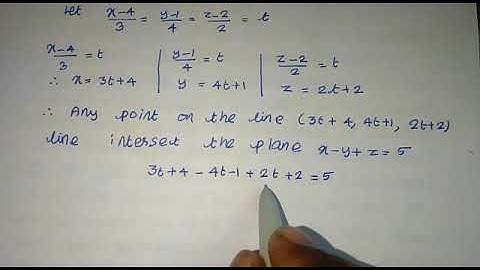 Let x-4/3 = y-1/4 = z-2/2 = t
x-4/3 = t | y-1/4 = t | z-2/2 = t
∴ x = 3t+4 | y = 4t+1 | z = 2t+2
∴ Any point on the line (3t+4, 4t+1, 2t+2)
line interset the plane x-y+z=5
3t+4 - 4t-1 + 2t + 2 = 5